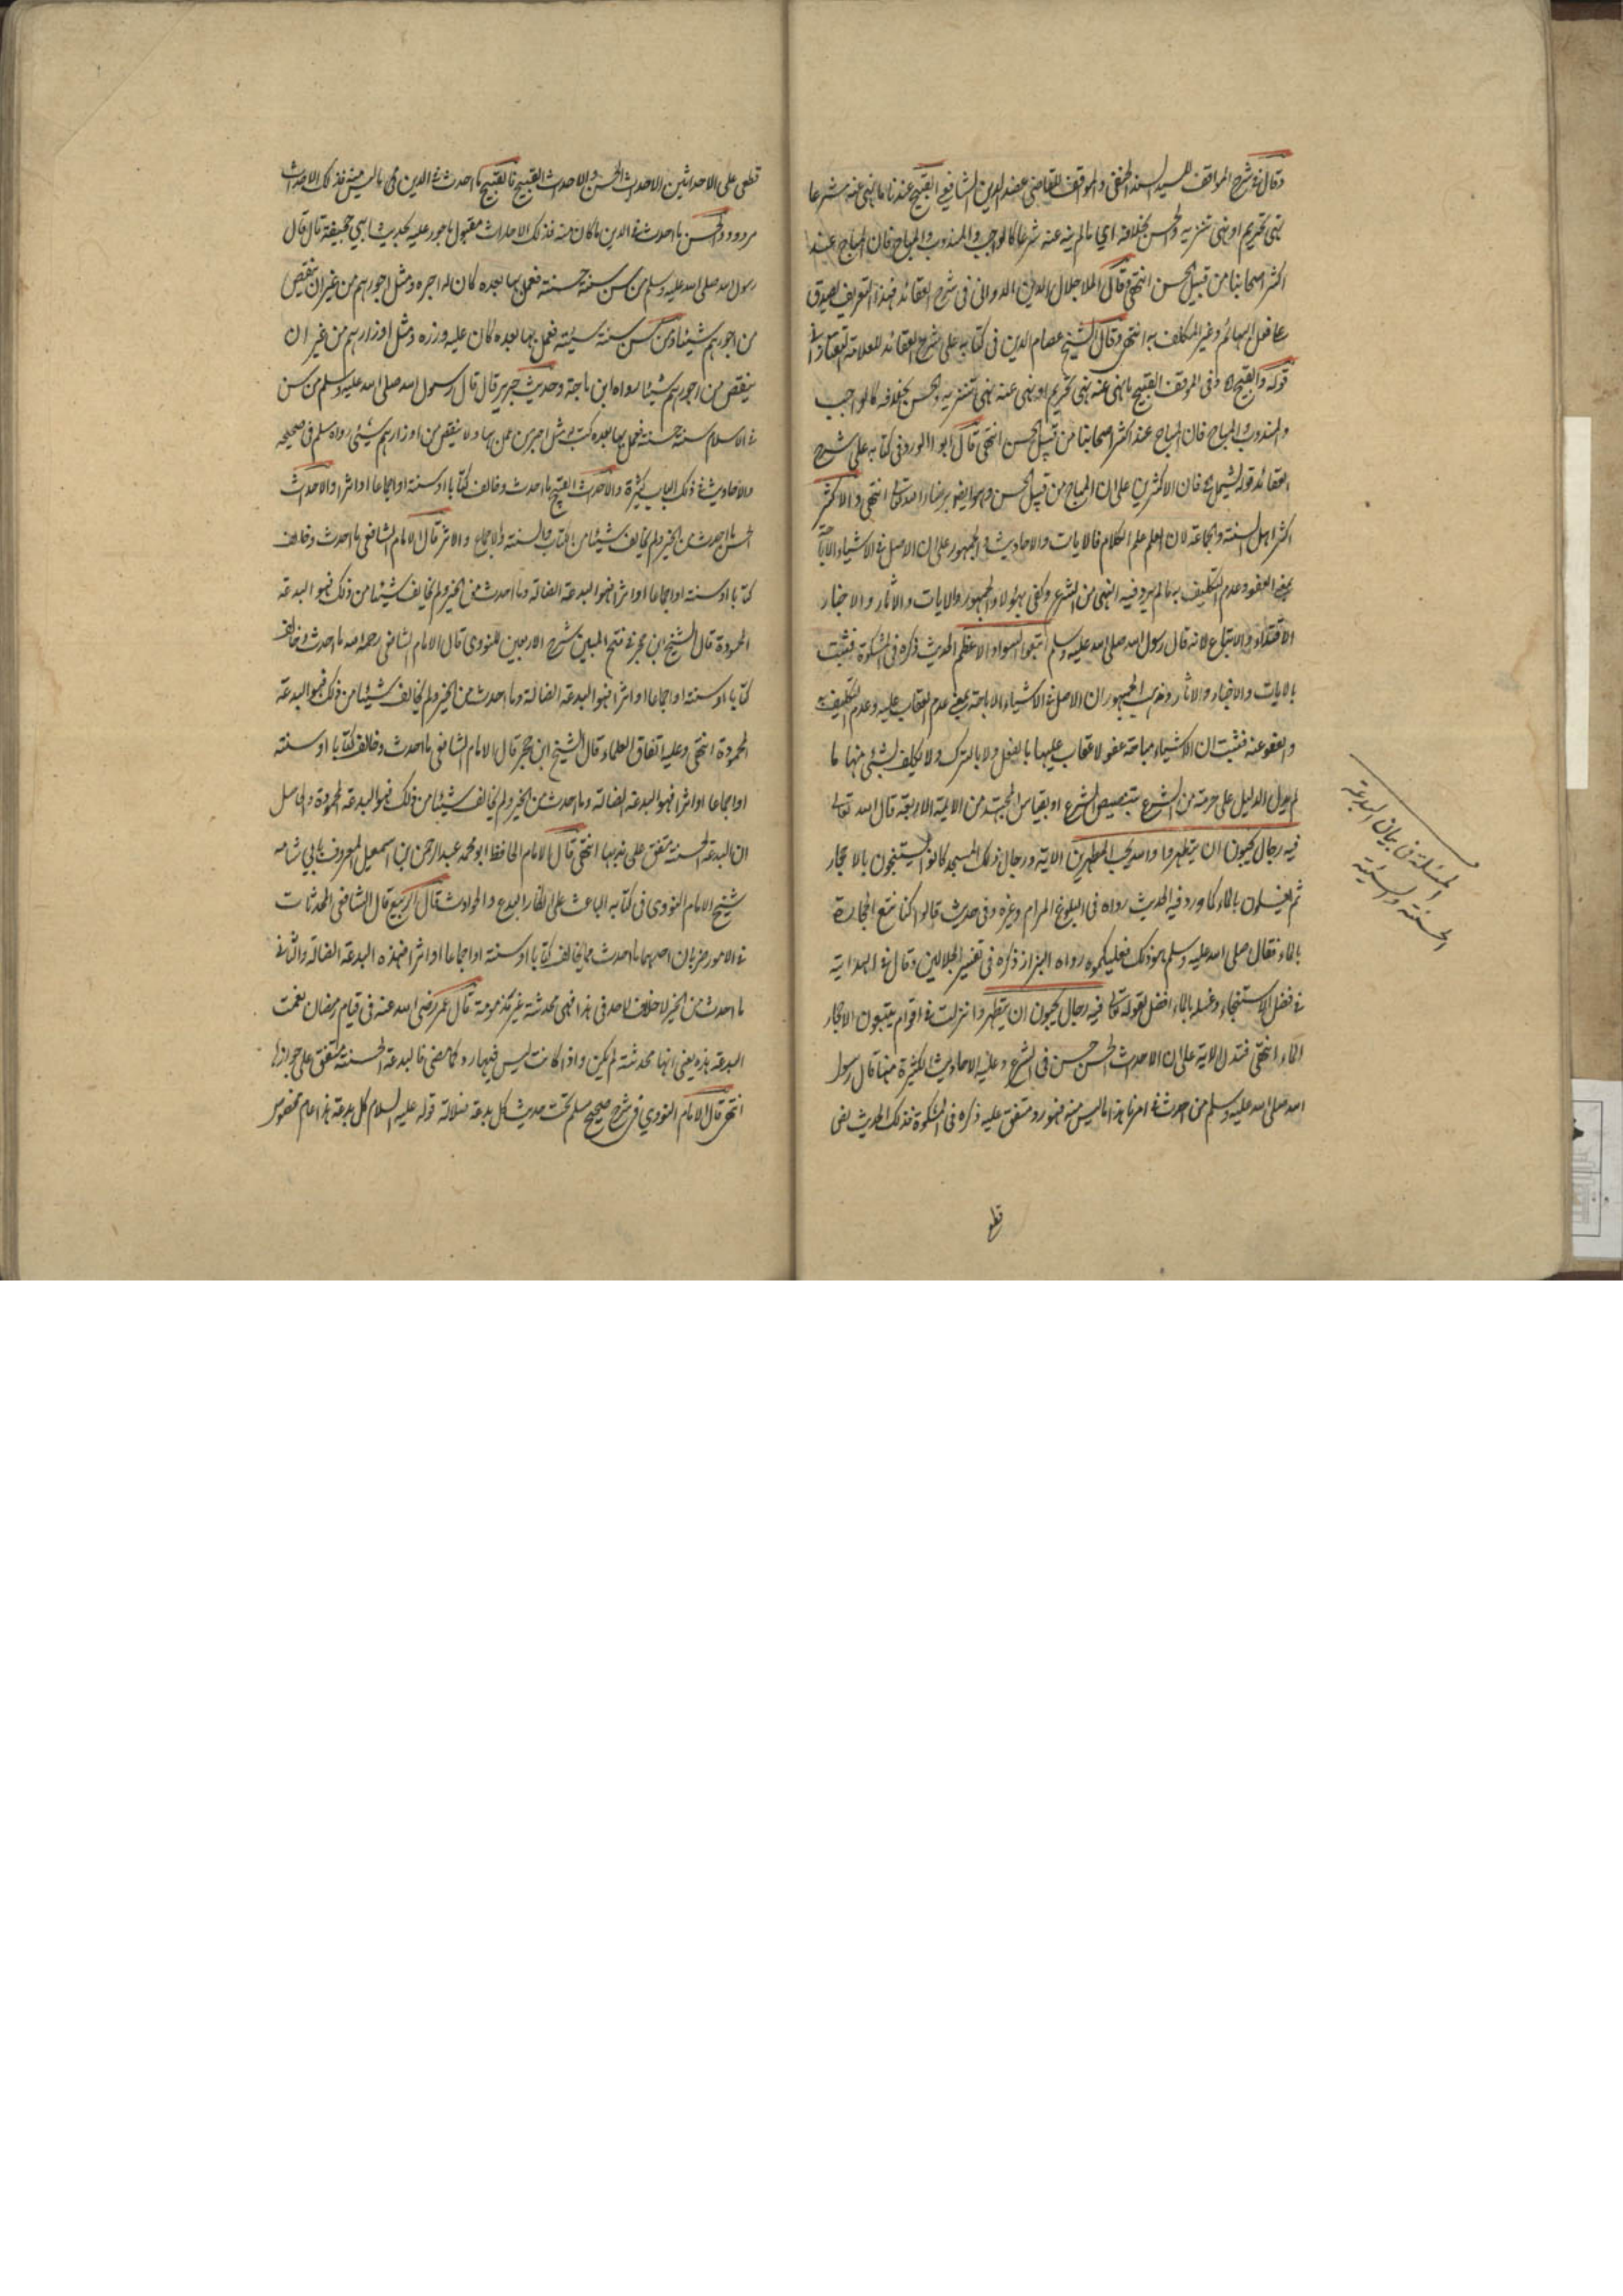 وقال في شرح المواقف للسيد السند الحنفي والمواقف للقاضي عضد الدين الشافعي القبيح عندنا ما نهي عنه شرعا
نهي تحريم او نهي تنزيه والحسن بخلافه اي ما لم ينه عنه شرعا كالواجب والمندوب والمباح فان المباح عند
اكثر اصحابنا من قبيل الحسن انتهى وقال الملا جلال الدين الدواني في شرح العقائد فهذا التعريف يصدق
على فعل البهائم وغير المكلف به انتهى وقال الشيخ عصام الدين في كتابه على شرح العقائد للعلامة التفتازاني
قوله والقبيح وفي المواقف القبيح ما نهي عنه نهي تحريم او نهي عنه نهي تنزيه والحسن بخلافه كالواجب
والمندوب والمباح فان المباح عند اكثر اصحابنا من قبيل الحسن انتهى قال ابوا الورد في كتابه على شرح
العقائد قوله ليشمل فان الاكثرين على ان المباح من قبيل الحسن وهو ايضو برضاء الله تعالى انتهى والاكثر
اكثر اهل السنة والجماعة لان العلم علم الكلام فالايات والاحاديث والجمهور على ان الاصل في الاشياء الاباحة
بمعنى العفو وعدم التكليف به ما لم يرد فيه النهي من الشرع وكفى بهؤلاء الجمهور والايات والاثار والاخبار
الاقتداء والاتباع لانه قال رسول الله صلى الله عليه وسلم اتبعوا السواد الاعظم الحديث ذكره في المشكوة فثبت
بالايات والاخبار والاثار ومذهب الجمهور ان الاصل في الاشياء الاباحة بمعنى عدم العقاب عليه وعدم التكليف به
والعفو عنه فثبت ان الاشياء مباحة عفو لا عقاب عليها بالفعل ولا بالترك ولا يكلف بشئ منها ما
لم يدل الدليل على حرمة من الشرع بتنصيص الشرع او بقياس المجتهد من الائمة الاربعة قال الله تعالى
فيه رجال يحبون ان يتطهروا والله يحب المطهرين الاية ورجال ذلك المسجد كانوا يستنجون بالاحجار
ثم يغسلون بالماء كما ورد فيه الحديث رواه في البلوغ المرام وغيره وفي حديث قالوا كنا نتبع الحجارة
بالماء فقال صلى الله عليه وسلم هو ذلك فعليكموه رواه البزار ذكره في تفسير الجلالين وقال في الهداية
في فضل الاستنجاء وغسله بالماء افضل لقوله تعالى فيه رجال يحبون ان يتطهروا نزلت في اقوام يتبعون الاحجار
الماء انتهى فتدل الاية على ان الاحداث الحسن حسن في الشرع وعليه الاحاديث الكثيرة منها قال رسول
الله صلى الله عليه وسلم من احدث في امرنا هذا ما ليس منه فهو رد متفق عليه ذكره في المشكوة فذلك الحديث نص
قطعي
المسئلة في بيان البدعة
الحسنة والسيئة
قطعي على الاحداثين الاحداث الحسن والاحداث القبيح فالقبيح ما احدث في الدين مما ليس منه فذلك الاحداث
مردود والحسن ما احدث في الدين ما كان منه فذلك الاحداث مقبول ماجور عليه بحديث ابي جحيفة قال قال
رسول الله صلى الله عليه وسلم من سن سنة حسنة فعمل بها بعده كان له اجره ومثل اجورهم من غير ان ينقص
من اجورهم شيئا ومن سن سنة سيئة فعمل بها بعده كان عليه وزره ومثل اوزارهم من غير ان
ينقص من اجورهم شيئا رواه ابن ماجة وحديث جرير قال قال رسول الله صلى الله عليه وسلم من سن
في الاسلام سنة حسنة فعمل بها بعده كتب له مثل اجر من عمل بها ولا ينقص من اوزارهم شئ رواه مسلم في صحيحه
والاحاديث في ذلك الباب كثيرة والاحداث القبيح ما احدث وخالف كتابا او سنة او اجماعا او اثرا والاحداث
الحسن ما احدث من الخير ولم يخالف شيئا من الكتاب والسنة والاجماع والاثر قال الامام الشافعي ما احدث وخالف
كتابا او سنة او اجماعا او اثرا فهو البدعة الضالة وما احدث من الخير ولم يخالف شيئا من ذلك فهو البدعة
المحمودة قال الشيخ ابن حجر في فتح المبين شرح الاربعين للنووي قال الامام الشافعي رحمه الله ما احدث وخالف
كتابا او سنة او اجماعا او اثرا فهو البدعة الضالة وما احدث من الخير ولم يخالف شيئا من ذلك فهو البدعة
المحمودة انتهى وعليه اتفاق العلماء قال الشيخ ابن حجر قال الامام الشافعي ما احدث وخالف كتابا او سنة
او اجماعا او اثرا فهو البدعة الضالة وما احدث من الخير ولم يخالف شيئا من ذلك فهو البدعة المحمودة والحاصل
ان البدعة الحسنة متفق على ندبها انتهى قال الامام الحافظ ابو محمد عبد الرحمن ابن اسمعيل المعروف بابي شامه
شيخ الامام النووي في كتابه الباعث على انكار البدع والحوادث قال الربيع قال الشافعي المحدثات
في الامور ضربان احدهما ما احدث مما يخالف كتابا او سنة او اجماعا او اثرا فهذه البدعة الضالة والثاني
ما احدث من الخير لا خلاف لاحد في هذا فهي محدثة غير مذمومة قال عمر رضي الله عنه في قيام رمضان نعمت
البدعة هذه يعني انها محدثة لم يكن واذا كانت ليس فيها رد كما مضى فالبدعة الحسنة متفق على جوازها
انتهى قال الامام النووي في شرح صحيح مسلم تحت حديث كل بدعة ضلالة قوله عليه السلام كل بدعة هذا عام مخصوص